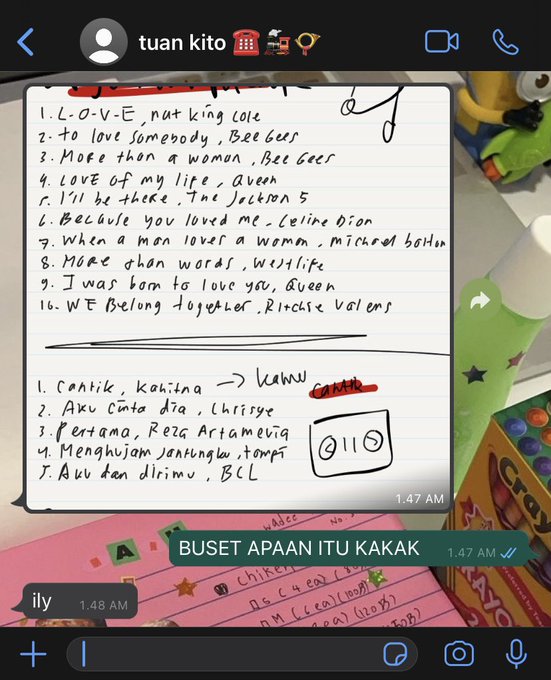 tuan kito ☎️🚂📯
1. L-O-V-E, nat king cole
2. to love somebody, Bee Gees
3. More than a woman, Bee Gees
4. LOVE of my life, Queen
5. I'll be there, The Jackson 5
6. Because you loved me, Celine Dion
7. When a man loves a woman, michael bolton
8. More than words, westlife
9. I was born to love you, Queen
10. WE Belong together, Ritchie Valens
1. Cantik, Kahitna → kamu cantik
2. Aku cinta dia, Chrisye
3. Pertama, Reza Artamevia
4. Menghujam jantungku, tompi
5. Aku dan dirimu, BCL
1.47 AM
BUSET APAAN ITU KAKAK 1.47 AM
ily 1.48 AM
A
chiken
Cray